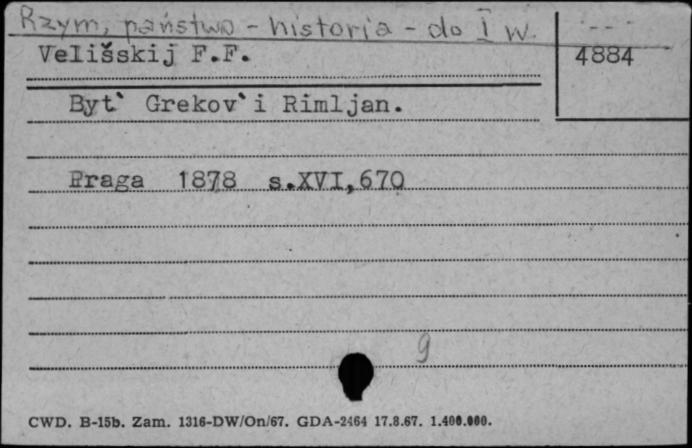 Rzym, państwo - historia - do I w.
Velišskij F.F.
4884
Byt` Grekov` i Rimljan.
Praga 1878 s.XVI,670
9
CWD. B-15b. Zam. 1316-DW/On/67. GDA-2464 17.8.67. 1.400.000.